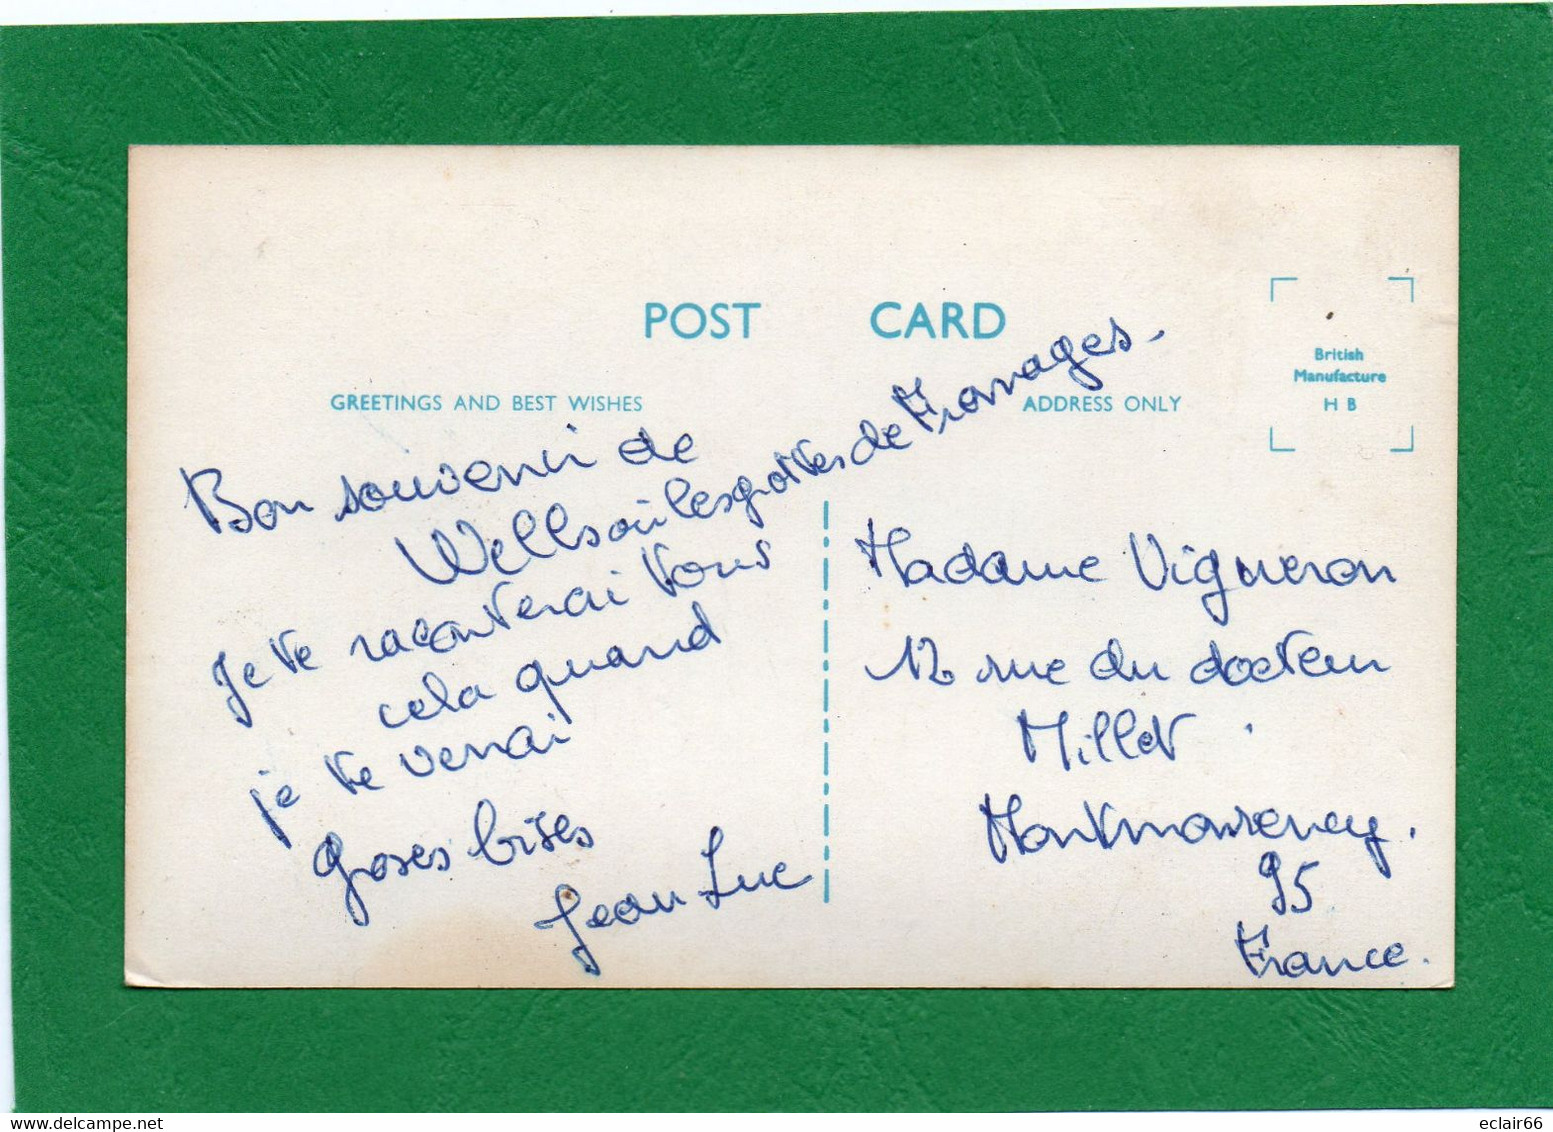 POST CARD
GREETINGS AND BEST WISHES
ADDRESS ONLY
British
Manufacture
H B
Bon souvenir de
Wells où les grottes de Fromages.
Je te raconterai tous
cela quand
je te verrai
Groses bises
Jean Luc
Madame Vigneron
12 rue du docteur
Millet
Montmorency.
95
France.
eclair66